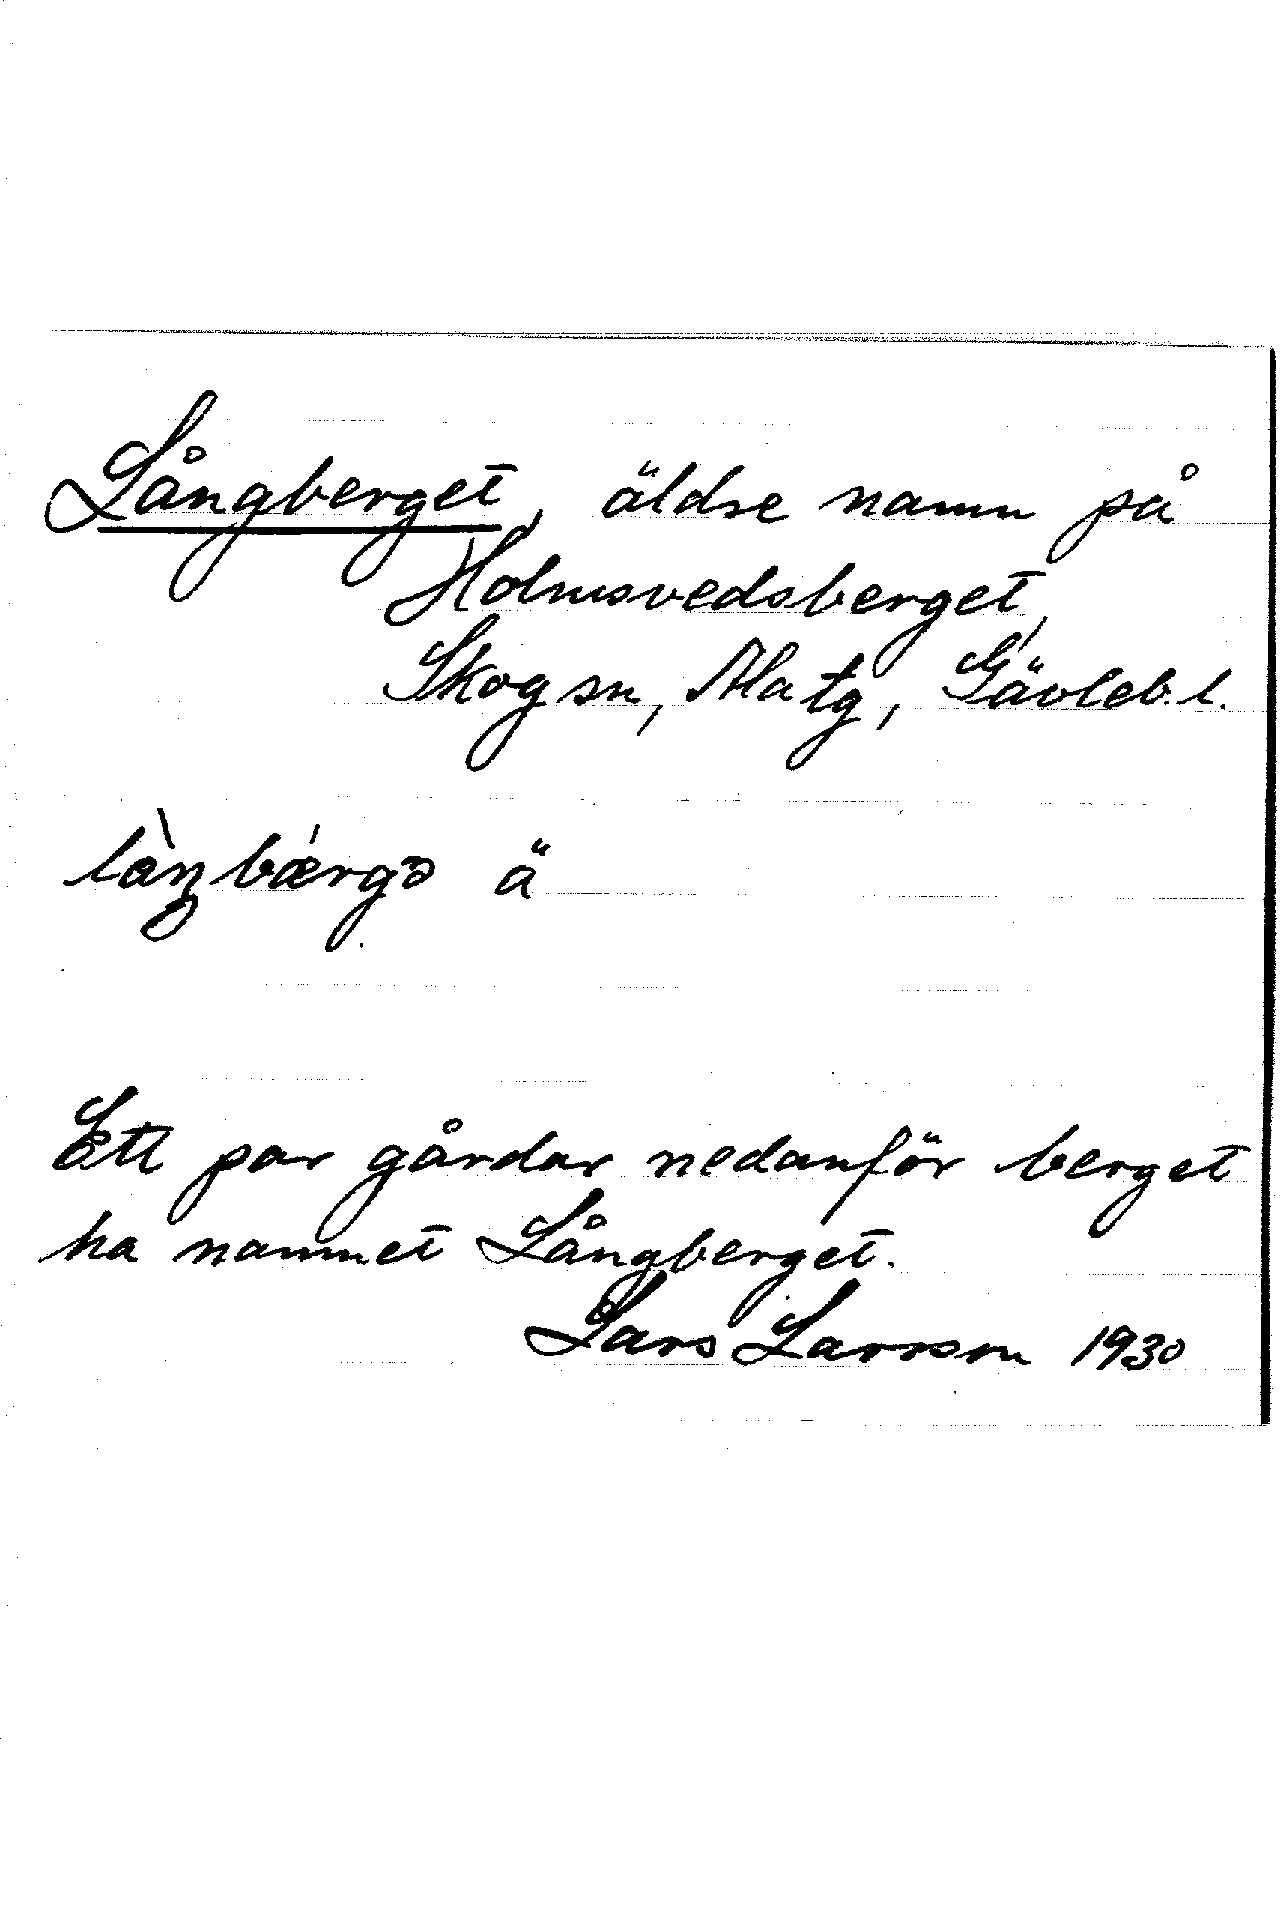 Långberget, äldre namn på
Holmsvedsberget,
Skog sn, Ala tg, Gävleb. l.
làŋbǽrgə ä
Ett par gårdar nedanför berget
ha namnet Långberget.
Lars Larsson 1930